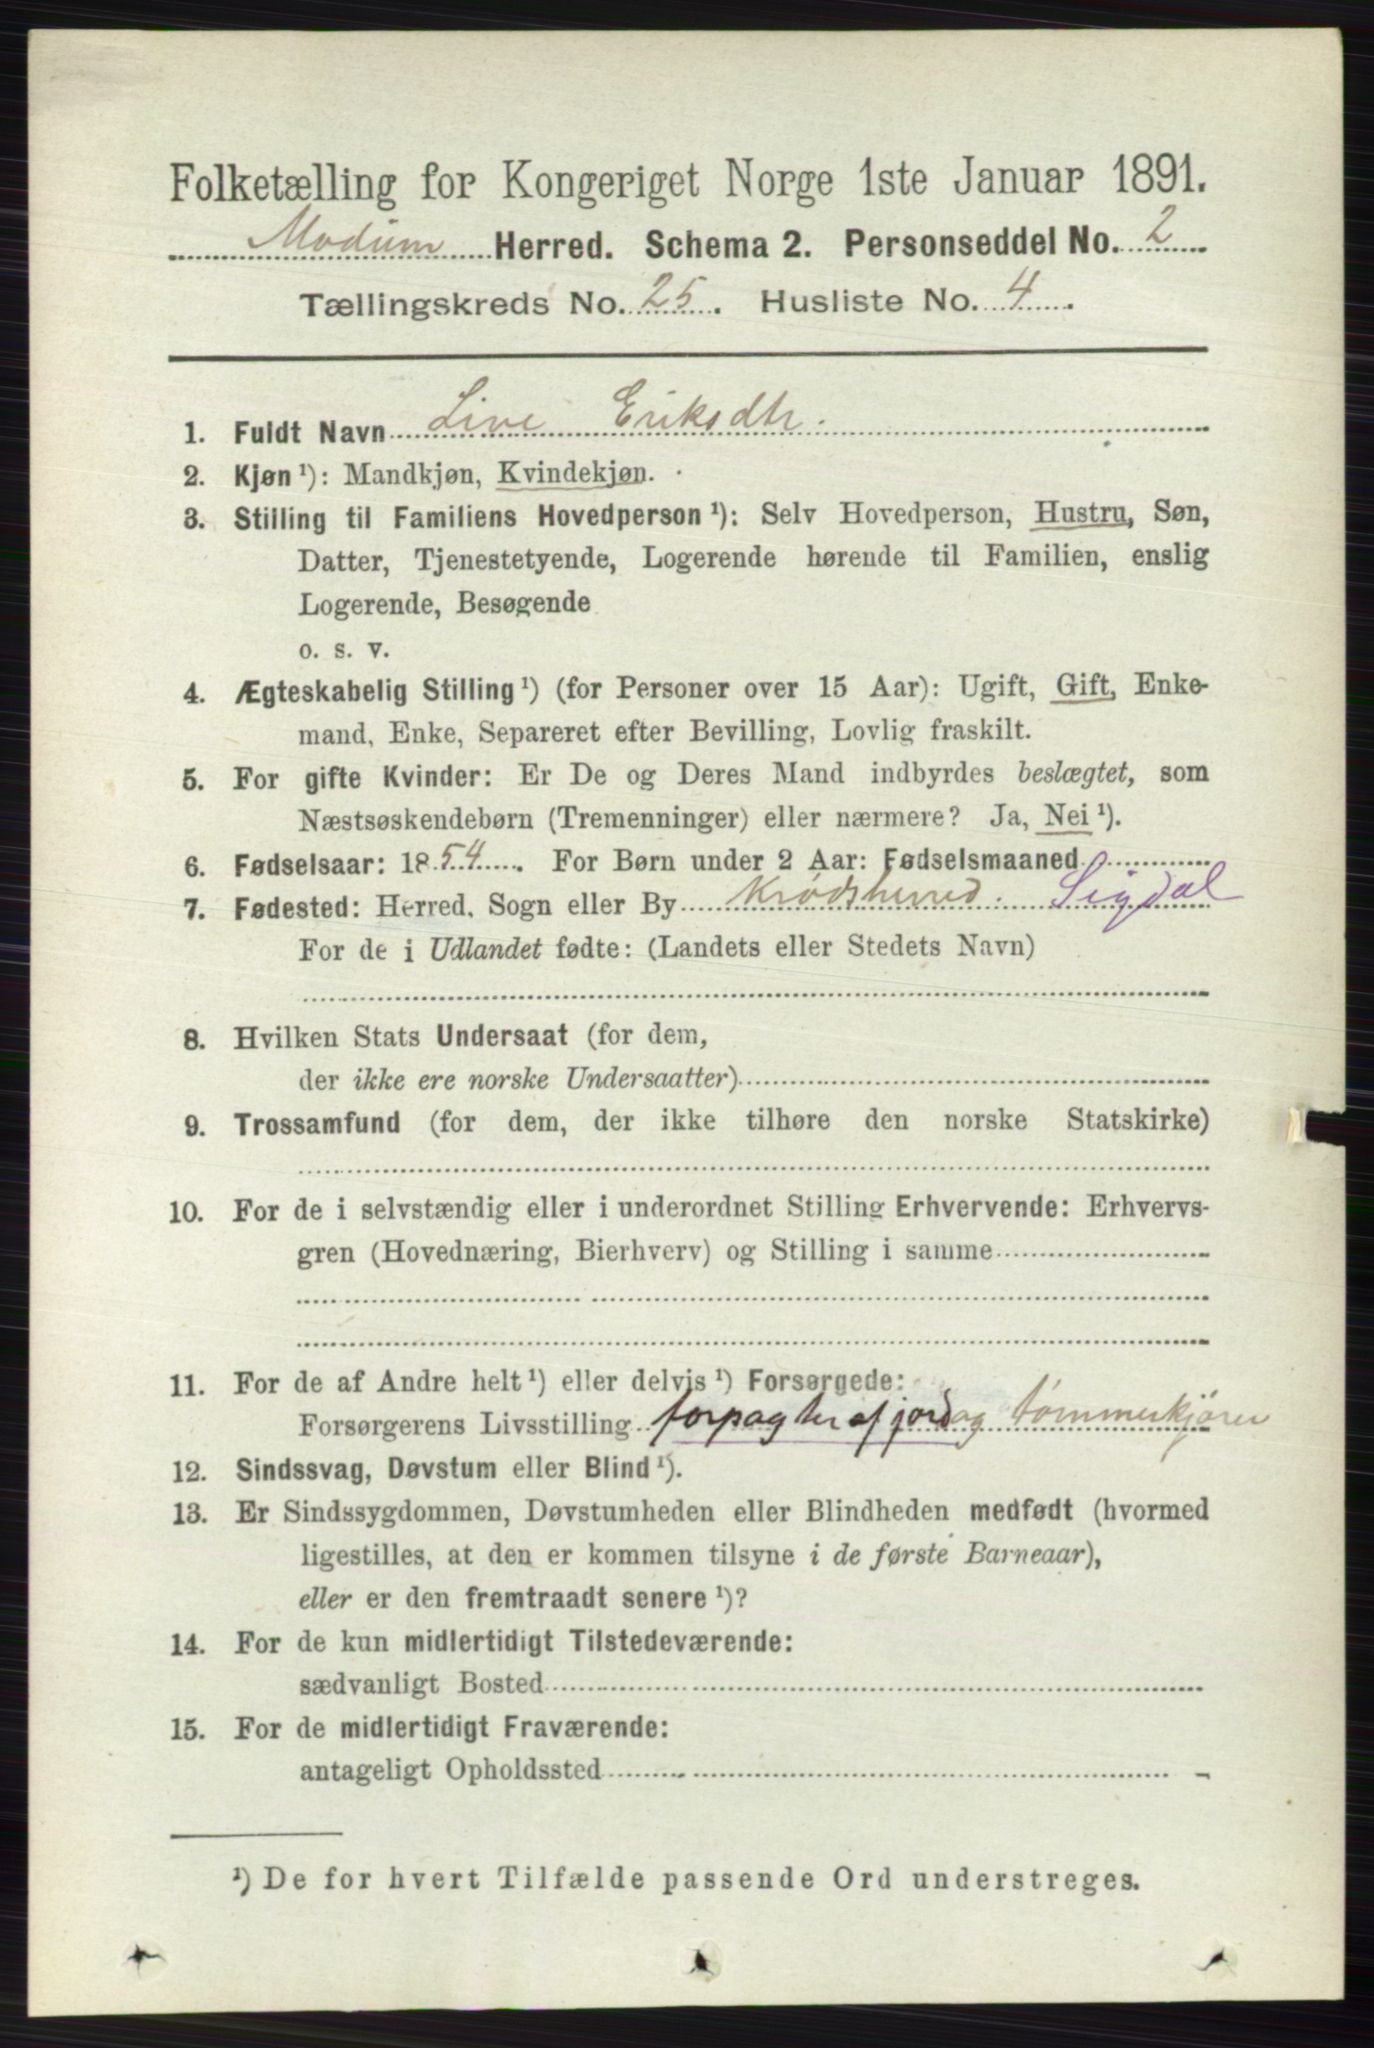 Folketælling for Kongeriget Norge 1ste Januar 1891.
Modum Herred. Schema 2. Personseddel No. 2
Tællingskreds No. 25. Husliste No. 4.
1. Fuldt Navn Live Eriksdtr.
2. Kjøn¹): Mandkjøn, Kvindekjøn.
3. Stilling til Familiens Hovedperson¹): Selv Hovedperson, Hustru, Søn,
Datter, Tjenestetyende, Logerende hørende til Familien, enslig
Logerende, Besøgende
o. s. v.
4. Ægteskabelig Stilling¹) (for Personer over 15 Aar): Ugift, Gift, Enke-
mand, Enke, Separeret efter Bevilling, Lovlig fraskilt.
5. For gifte Kvinder: Er De og Deres Mand indbyrdes beslægtet, som
Næstsøskendebørn (Tremenninger) eller nærmere? Ja, Nei¹).
6. Fødselsaar: 1854. For Børn under 2 Aar: Fødselsmaaned
7. Fødested: Herred, Sogn eller By Krødsherred. Sigdal
For de i Udlandet fødte: (Landets eller Stedets Navn)
8. Hvilken Stats Undersaat (for dem,
der ikke ere norske Undersaatter)
9. Trossamfund (for dem, der ikke tilhøre den norske Statskirke)
10. For de i selvstændig eller i underordnet Stilling Erhvervende: Erhvervs-
gren (Hovednæring, Bierhverv) og Stilling i samme
11. For de af Andre helt¹) eller delvis¹) Forsørgede:
Forsørgerens Livsstilling forpagter af jord og tømmerkjører
12. Sindssvag, Døvstum eller Blind¹).
13. Er Sindssygdommen, Døvstumheden eller Blindheden medfødt (hvormed
ligestilles, at den er kommen tilsyne i de første Barneaar),
eller er den fremtraadt senere¹)?
14. For de kun midlertidigt Tilstedeværende:
sædvanligt Bosted
15. For de midlertidigt Fraværende:
antageligt Opholdssted
¹) De for hvert Tilfælde passende Ord understreges.